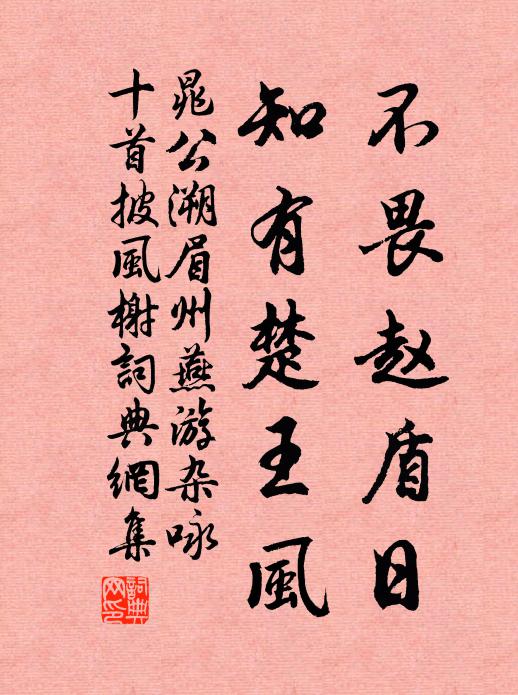 不畏赵盾日
知有楚王風
晁公溯眉州燕游杂咏
十首披風榭詞典網集
詞典网印